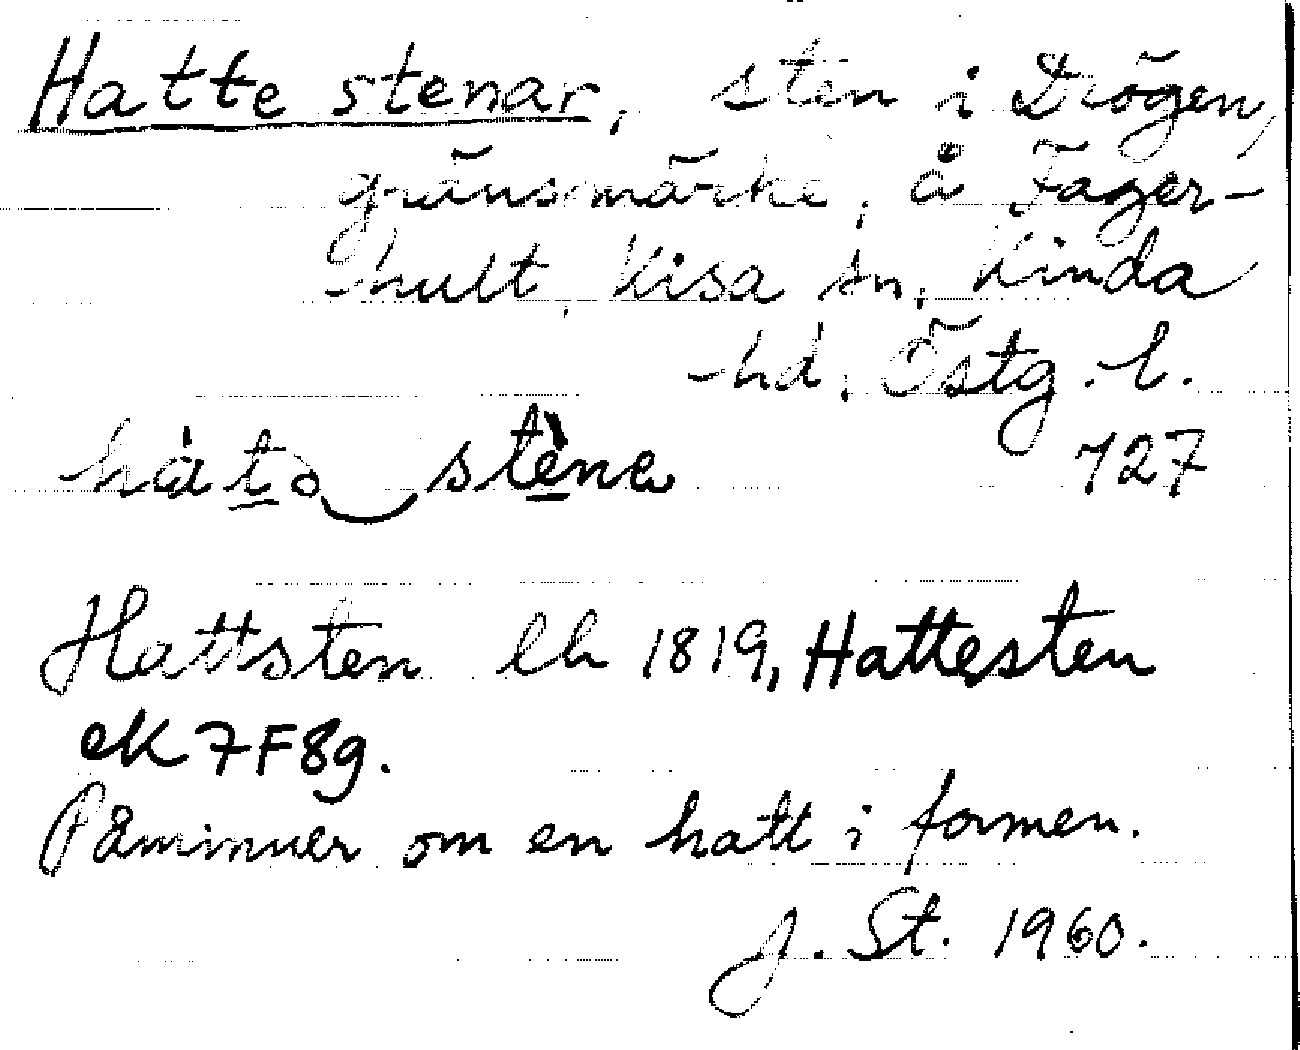 Hatte stenar, sten i Drögen,
gränsmärke, å Fager-
hult, Kisa sn, Kinda
hd, Östg. l.
hàtə stènɐ 727
Hattsten lh 1819, Hattesten
ek 7F8g.
Påminner om en hatt i formen.
J. St. 1960.